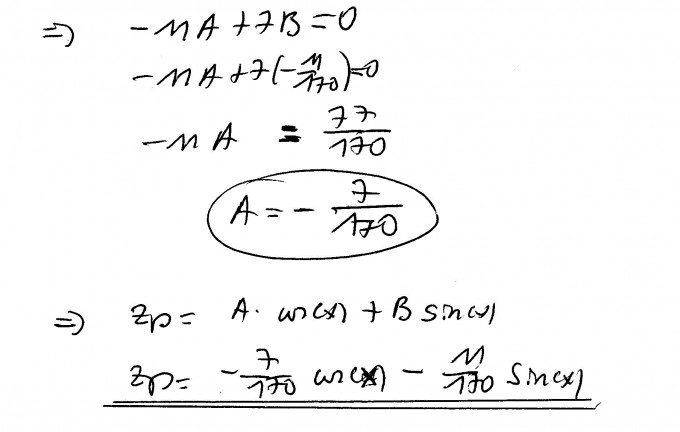 ⇒ -11A + 7B = 0
-11A + 7(-11/170) = 0
-11A = 77/170
A = - 7/170
⇒ zp = A · cos(x) + B sin(x)
zp = - 7/170 cos(x) - 11/170 sin(x)